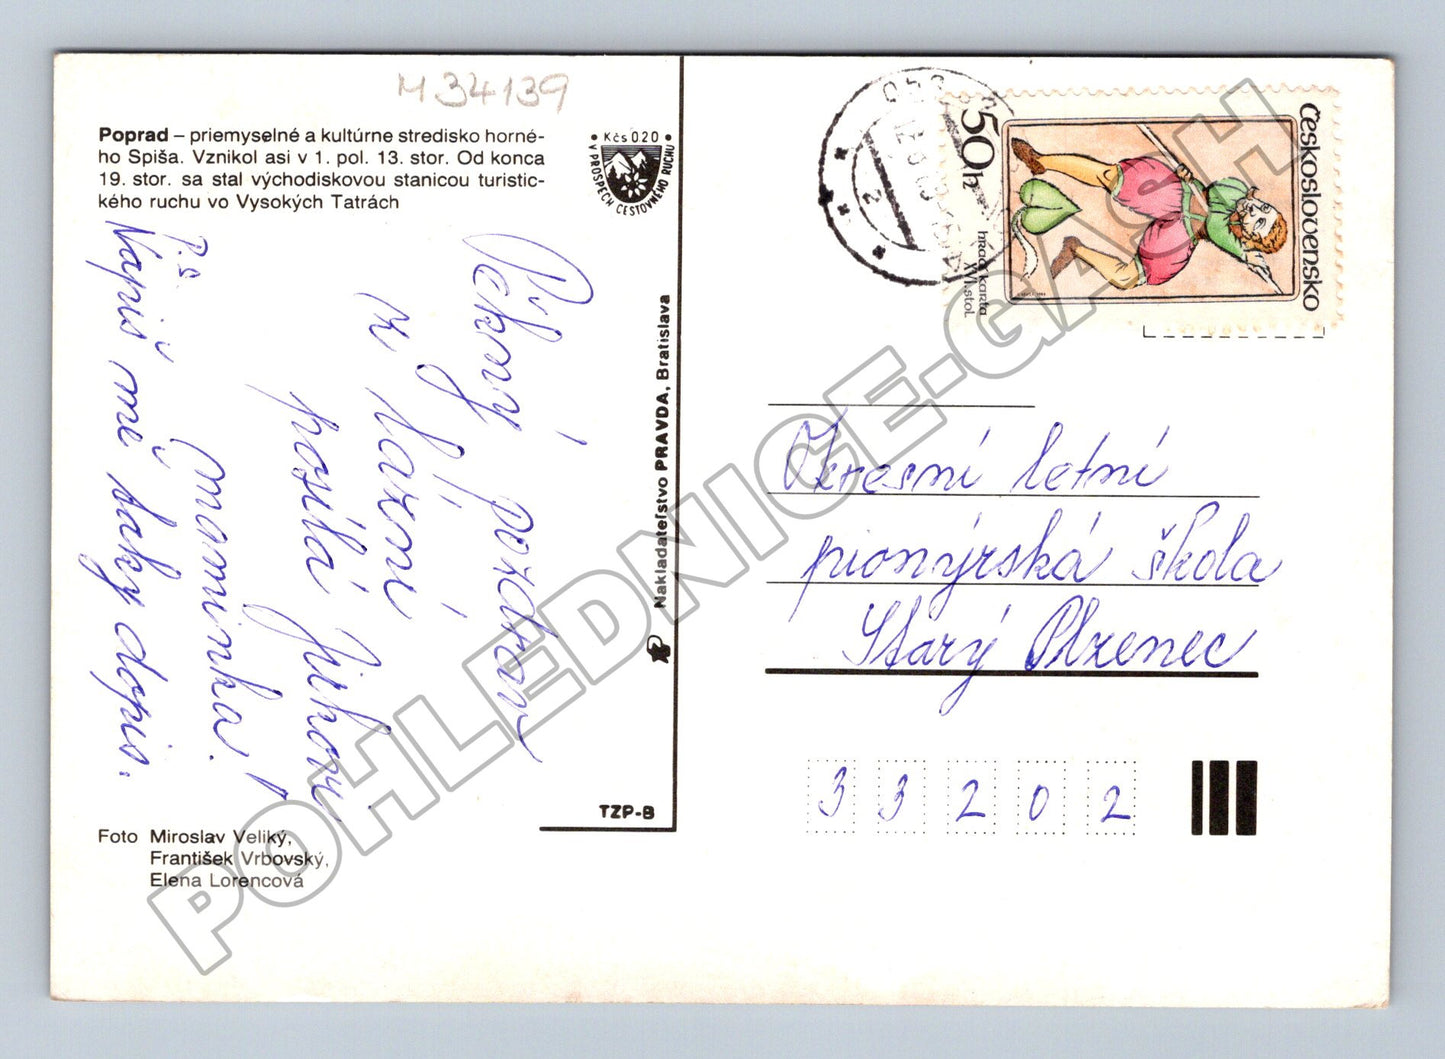 M 34139
Poprad – priemyselné a kultúrne stredisko horné-
ho Spiša. Vznikol asi v 1. pol. 13. stor. Od konca
19. stor. sa stal východiskovou stanicou turistic-
kého ruchu vo Vysokých Tatrách
• Kčs 0 20 •
V PROSPECH CESTOVNÉHO RUCHU
Pěkný pozdrav
z
posílá
maminka!
P.S.
Napiš mě taky dopis.
Nakladateľstvo PRAVDA, Bratislava
TZP-B
Foto Miroslav Veliký,
František Vrbovský,
Elena Lorencová
Československo
50h
hrací karta
XVI. stol.
Okresní letní
pionýrská škola
Starý Plzenec
3 3 2 0 2
POHLEDNICE-GASH